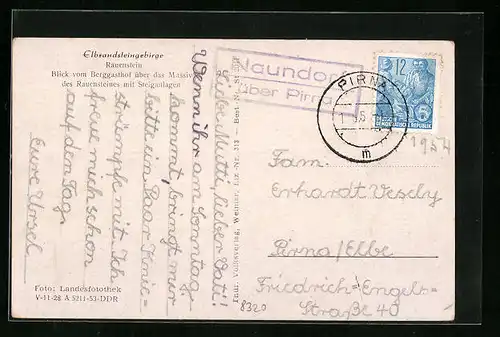 Elbsandsteingebirge
Rauenstein
Blick vom Berggasthof über das Massiv
des Rauensteines mit Steiganlagen
Liebe Mutti, lieber Vati!
Wenn ihr am Sonntag
kommt, bringt mir
bitte ein Paar Knie=
strümpfe mit. Ich
freue mich schon
auf den Tag.
Eure Ursel
Foto: Landesfotothek
V-11-28 A 5211-53-DDR
Naundorf
über Pirna
PIRNA
m
12
DEUTSCHE
DEMOKRATISCHE REPUBLIK
6
1954
Fam.
Erhardt Vesely
Pirna/Elbe
Friedrich-Engels-
Straße 40
8320